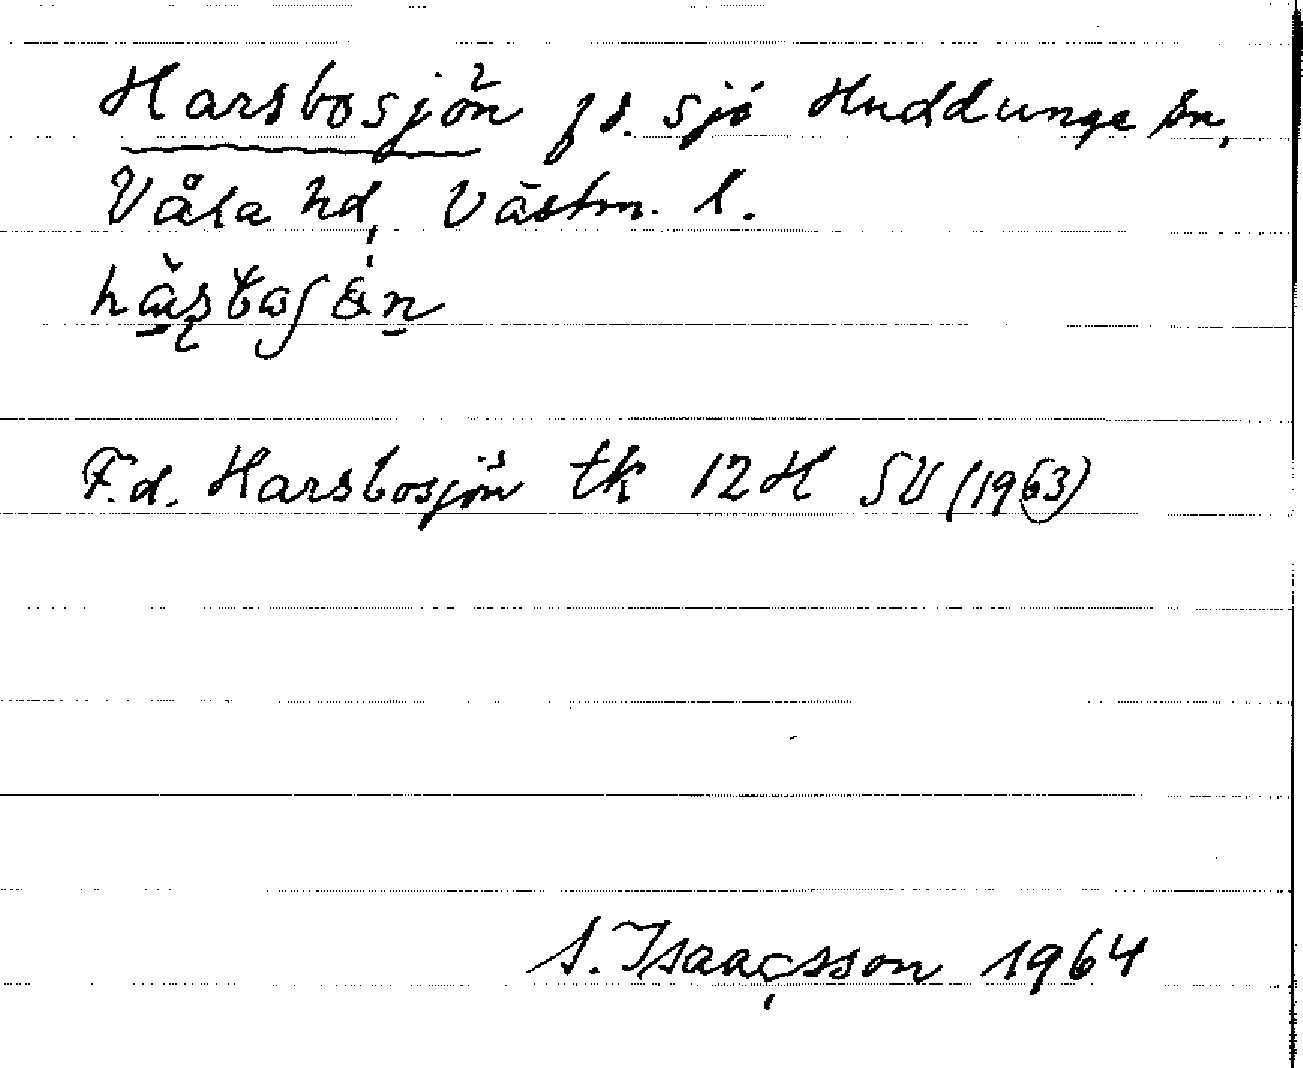 Harsbosjön f d. sjö Huddunge sn,
Våla hd, Västm. l.
F.d. Harsbosjön tk 12H SV (1963)
S. Isaacsson 1964